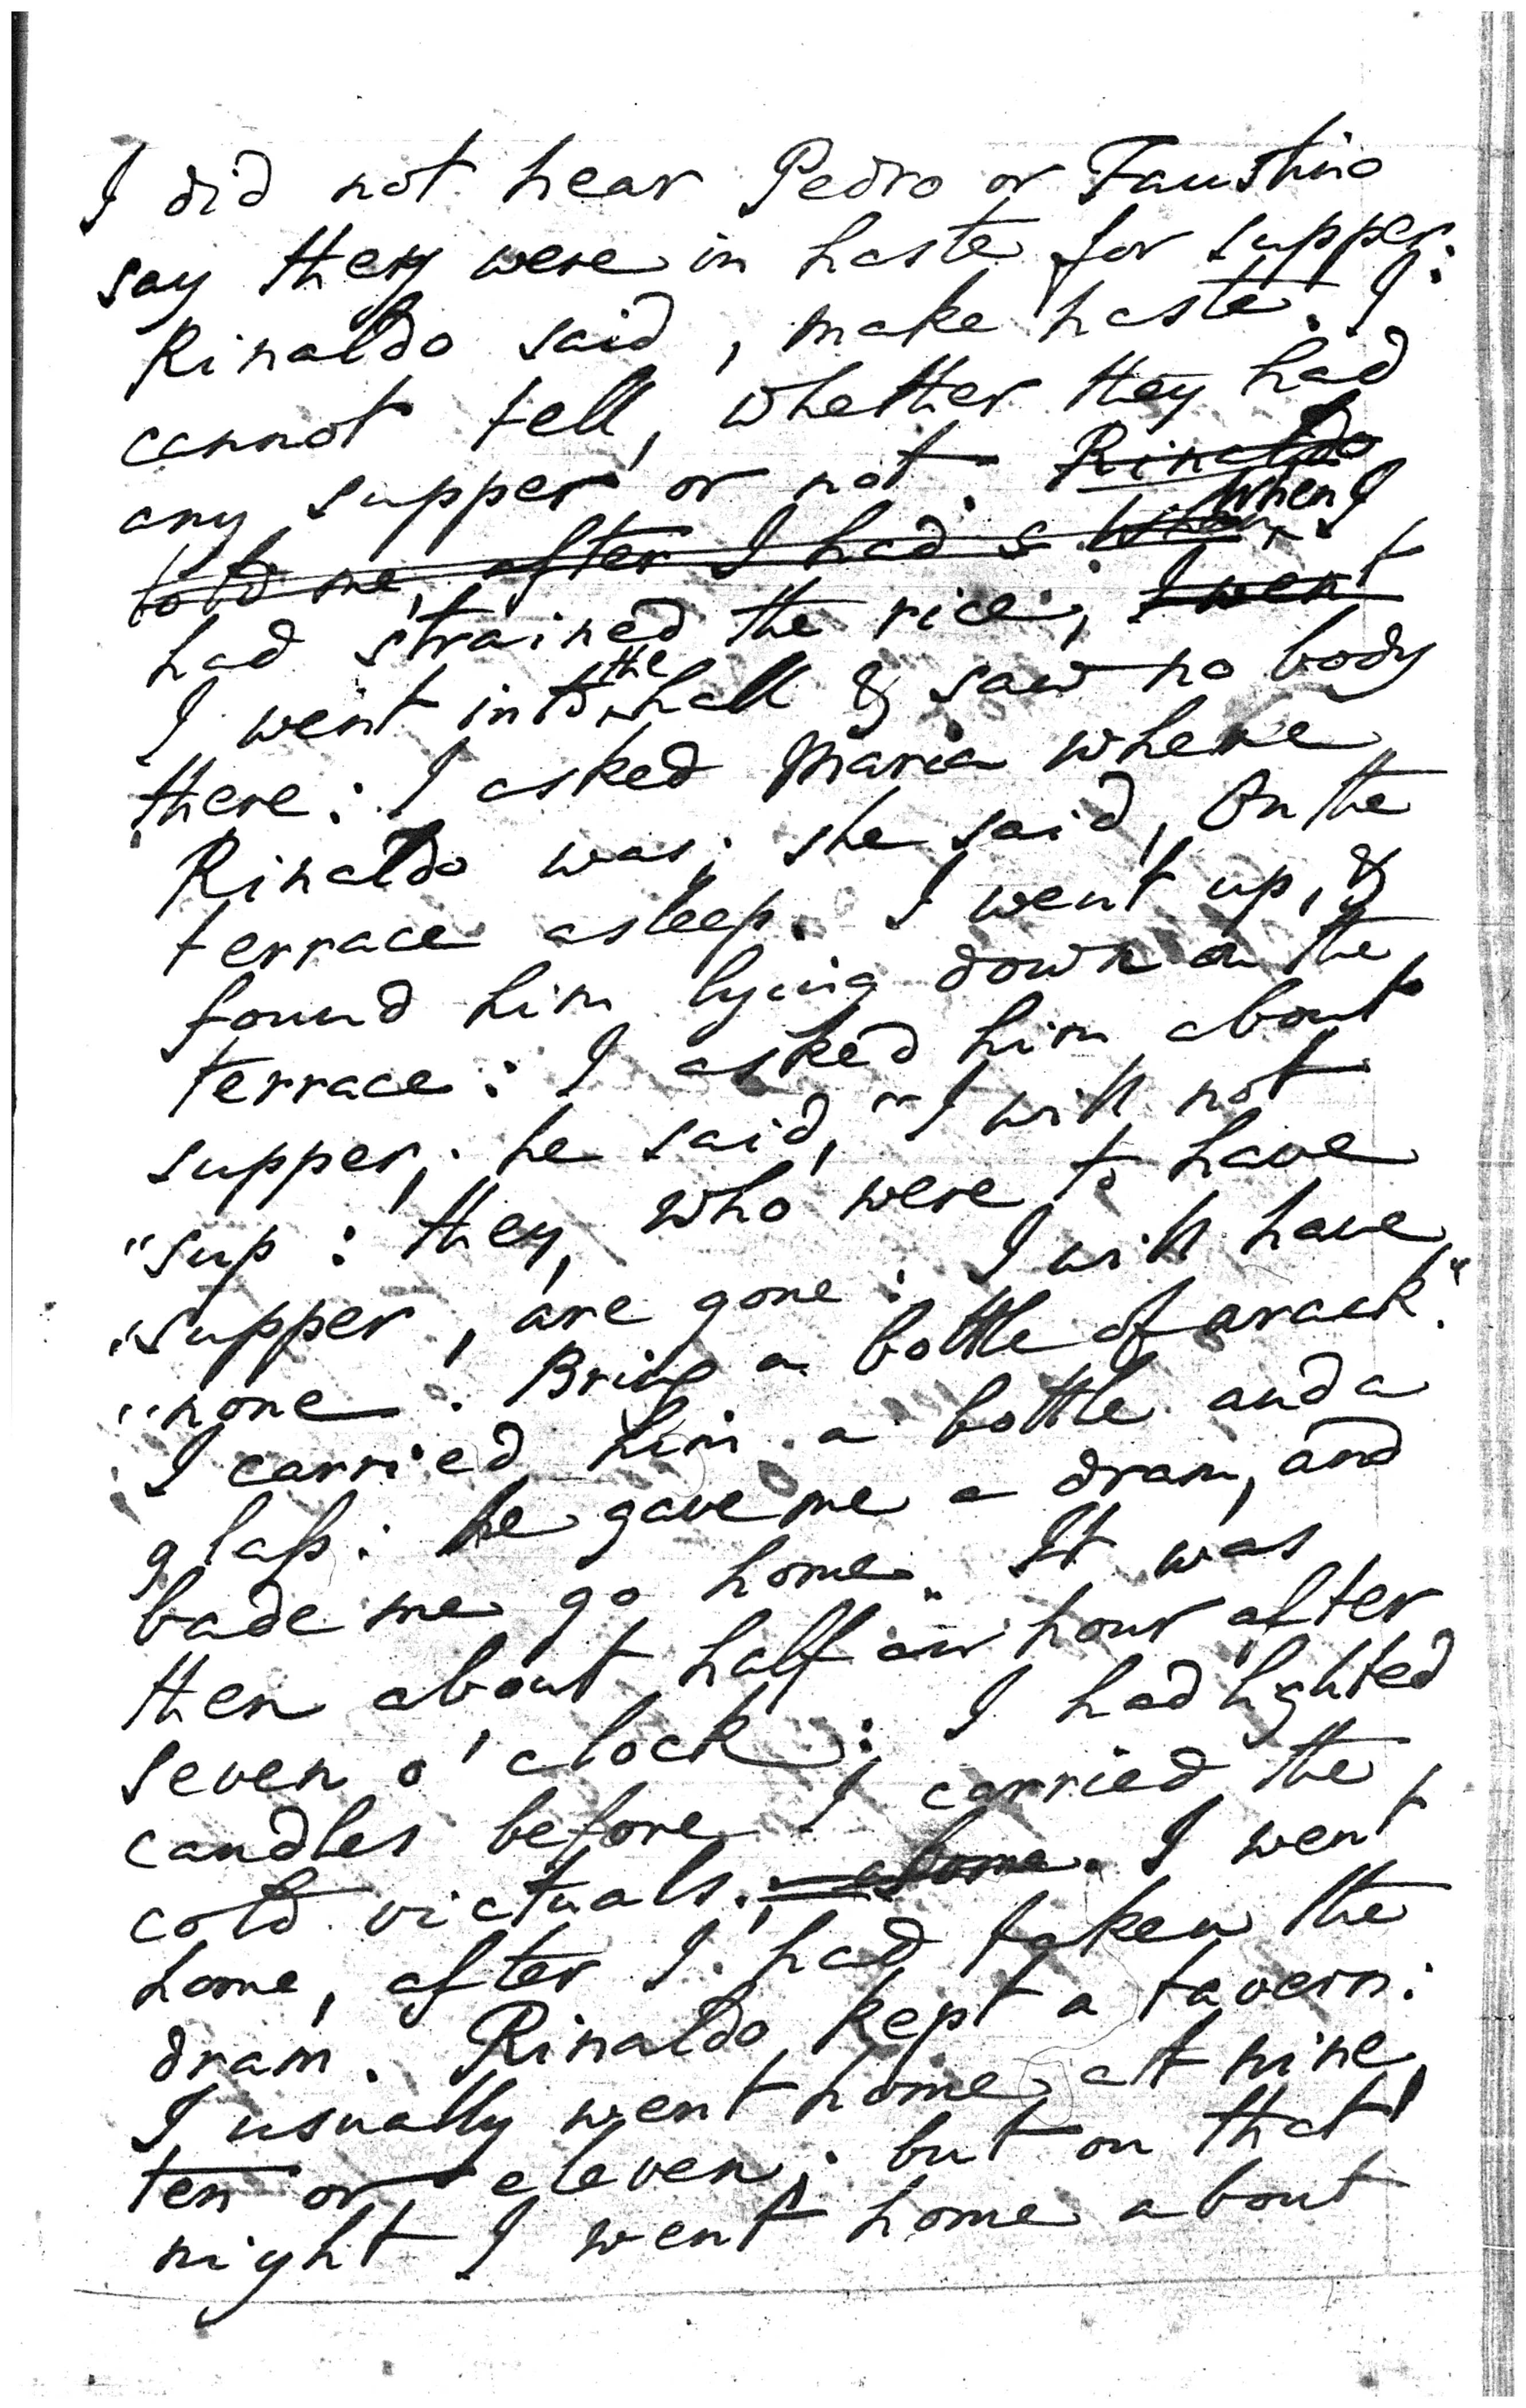 I did not hear Pedro or Faustino
say they were in haste for supper:
Rinaldo said, make haste. I
cannot tell, whether they had
any supper or not. Rinaldo
told me, after I had s when when I
had strained the rice, I went
I went into the hall & saw no body
there: I asked Maria where
Rinaldo was; she said, On the
terrace asleep. I went up, &
found him lying down on the
terrace: I asked him about
supper; he said, "I will not
"sup: they, who were to have
"supper, are gone: I will have
"none. Bring a bottle of arack."
I carried him a bottle and a
glaſs: he gave me a dram, and
bade me go home. It was
then about half an hour after
seven o'clock: I had lighted
candles before I carried the
cold victuals. I went
home, after I had taken the
dram. Rinaldo kept a tavern:
I usually went home at nine,
ten or eleven; but on that
night I went home about